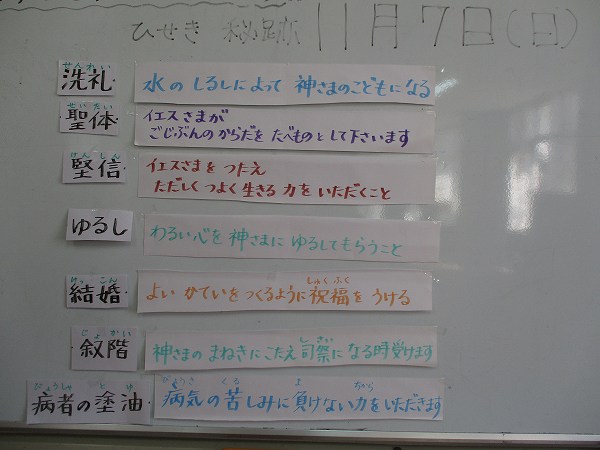 ひせき 秘跡 11月7日(日)
せんれい
洗礼
水の しるしによって 神さまのこどもになる
せいたい
聖体
イエスさまが
ごじぶんの からだを たべものとして下さいます
けんしん
堅信
イエスさまを つたえ
ただしく つよく 生きる 力を いただくこと
ゆるし
わるい心を 神さまに ゆるしてもらうこと
けっこん
結婚
しゅくふく
よい かていを つくるように 祝福を うける
じょかい
叙階
しさい
神さまの まねきにこたえ 司祭に なる時受けます
びょうしゃ と ゆ
病者の塗油
びょうき くる ま ちから
病気の苦しみに負けない力をいただきます